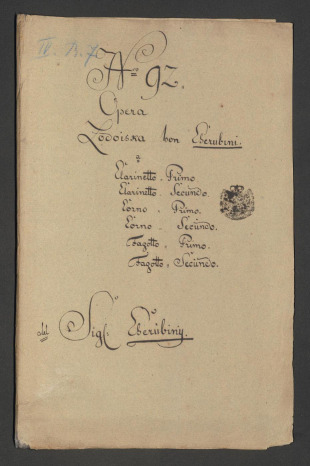 IV. B. 7.
Nº 92.
Opera
Lodoiska von Cherubini.
a
Clarinetto. Primo
Clarinetto. Secundo.
Corno. Primo.
Corno. Secundo.
Fagotto. Primo.
Fagotto. Secundo.
del Sigl: Cherubiny.